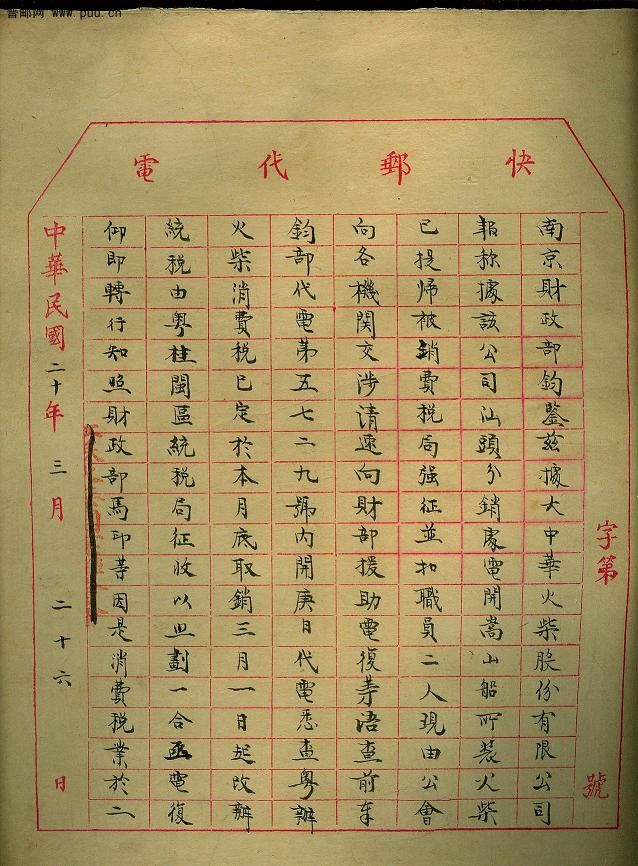 普邮网 www.puu.cn
快郵代電
字第 號
南京財政部鈞鑒茲據大中華火柴股份有限公司
報称據該公司汕頭分銷處電開嵩山船所裝火柴
已提歸被銷費税局强征並扣職員二人現由公會
向各機關交涉清速向財部援助電復等语查前奉
鈞部代電第五七二九號内開庚日代電悉查粤辦
火柴消費税已定於本月底取銷三月一日起改辦
統税由粤桂閩區統税局征收以劃一合亟電復
仰即轉行知照財政部馬印等因是消費税業於二
中華民國二十年三月二十六日